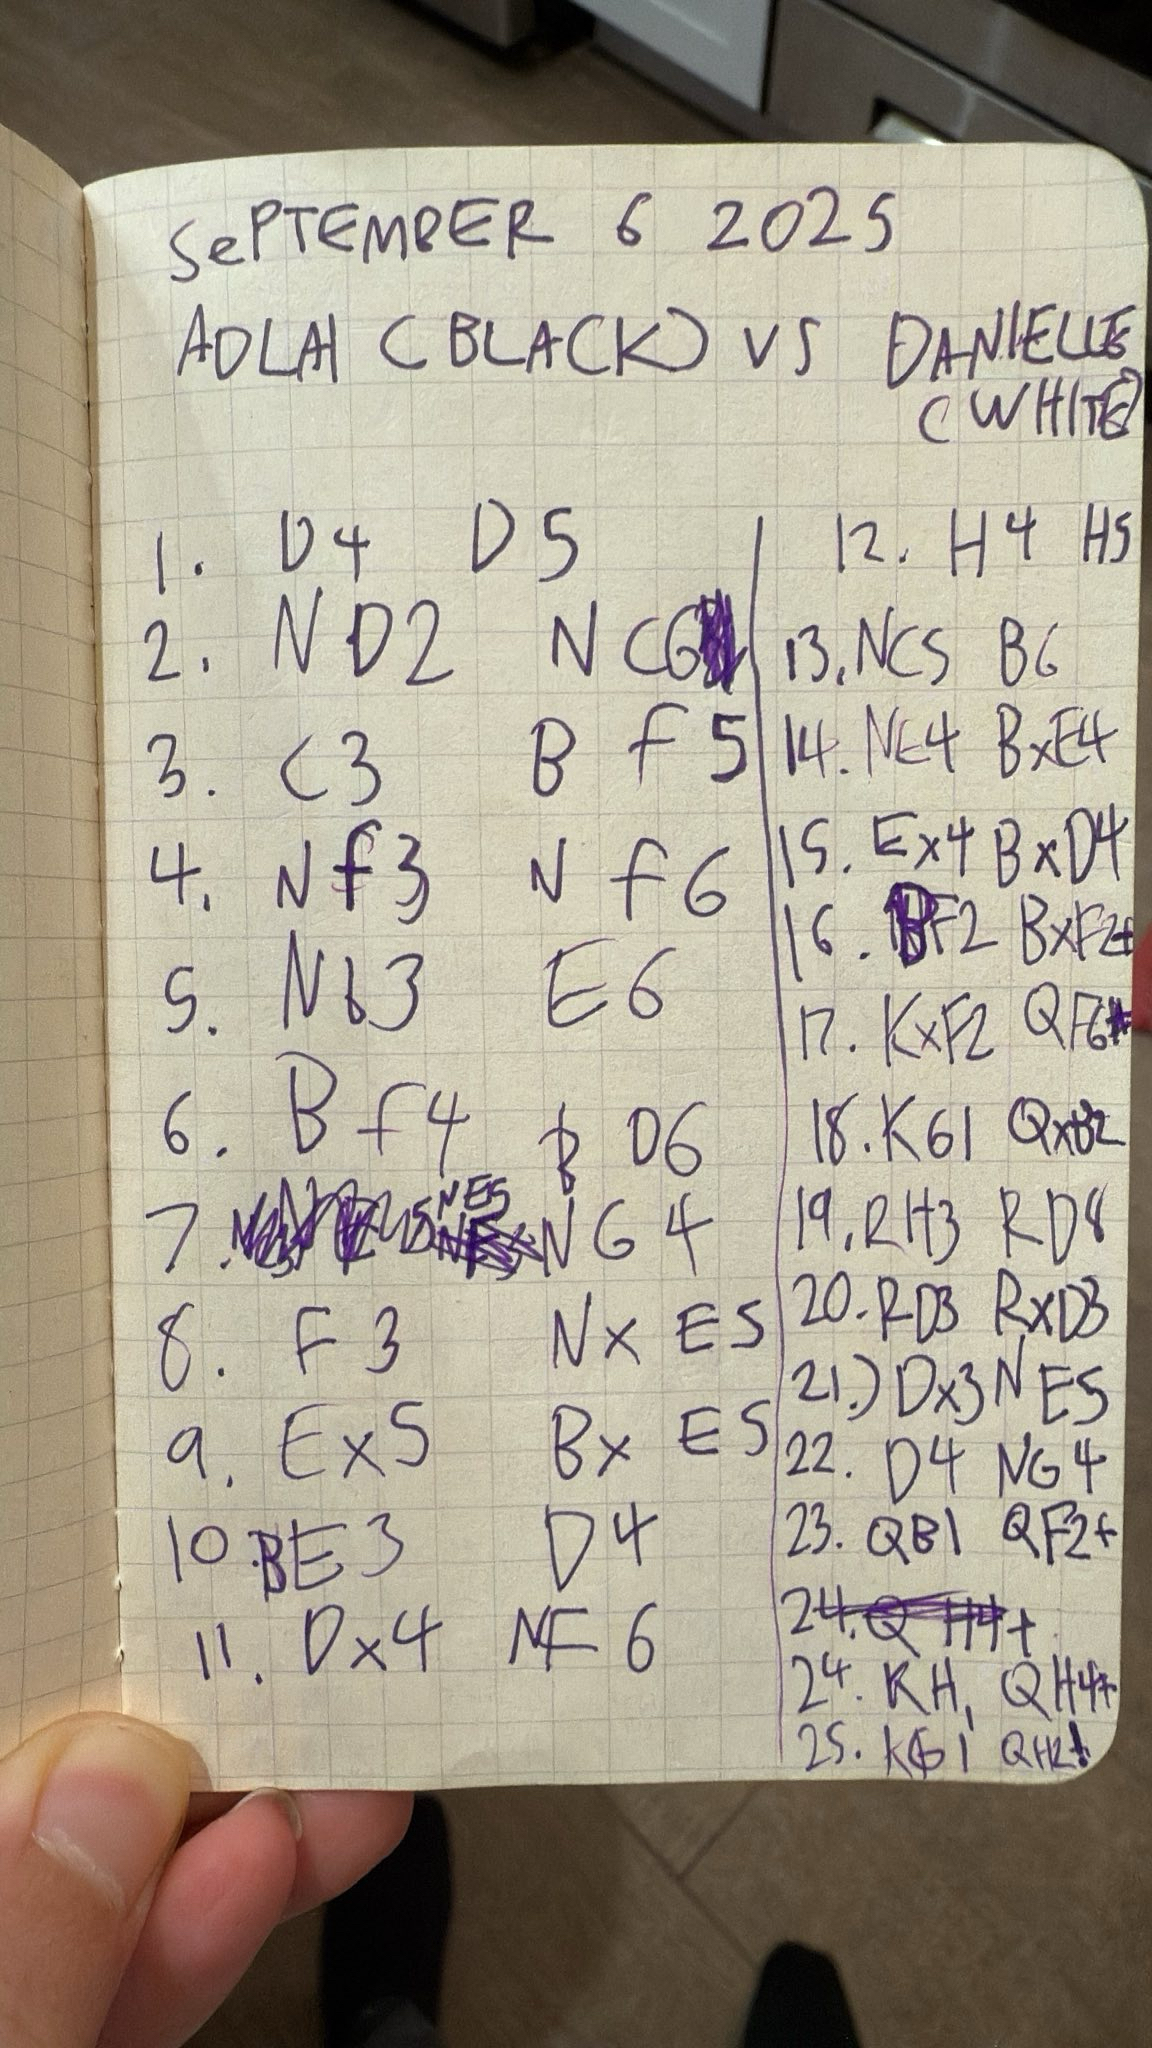 SePTEMBER 6 2025
ADLAI (BLACK) VS DANIELLE
(WHITE)
1. D4 D5
2. ND2 NC6
3. C3 B F5
4. NF3 N F6
5. Nb3 E6
6. B F4 B D6
7. NE5 NG4
8. F3 Nx E5
9. Ex5 Bx E5
10. BE3 D4
11. Dx4 NF6
12. H4 H5
13. NC5 B6
14. NE4 BxE4
15. Ex4 BxD4
16. BF2 BxF2+
17. KxF2 QF6+
18. KG1 QxB2
19. RH3 RD8
20. RD3 RxD3
21.) Dx3 NE5
22. D4 NG4
23. QB1 QF2+
24. Q H4+
24. KH1 QH4+
25. KG1 QH2!